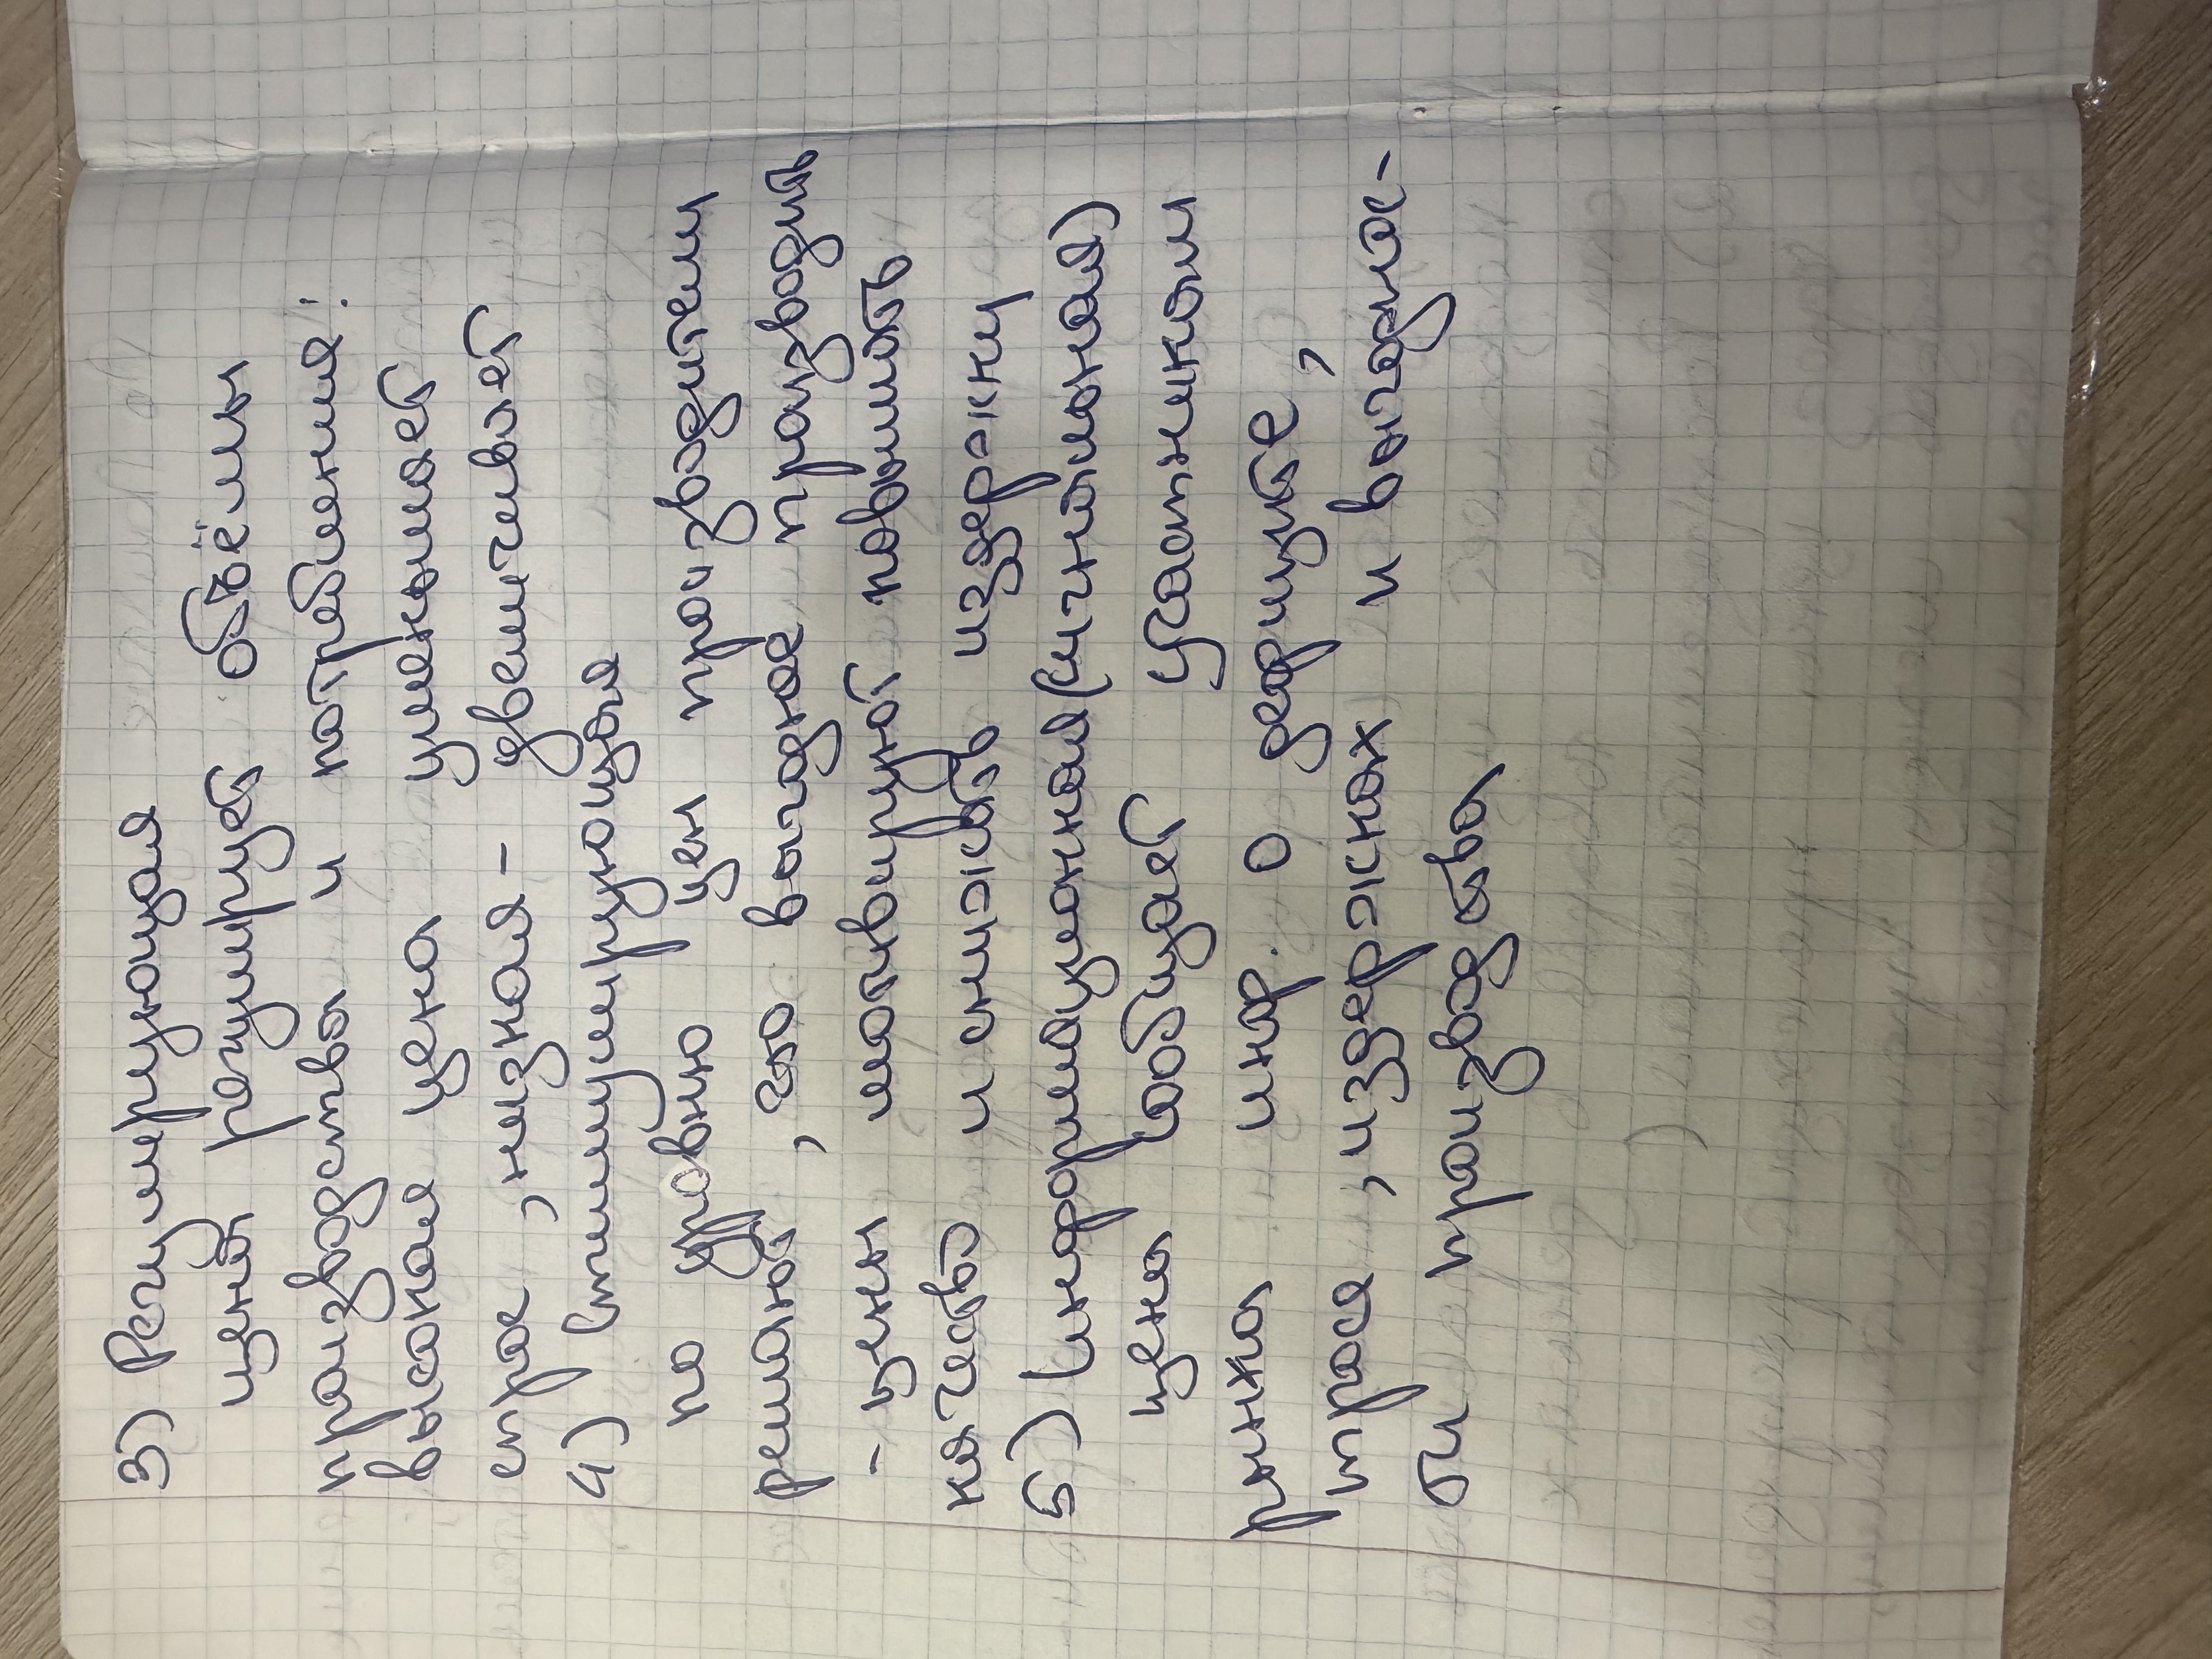 3) Регулирующая
цена регулирует объёмы
производства и потребления:
высокая цена уменьшает
спрос, низкая - увеличивает
4) Стимулирующая
по уровню цен производители
решают, что выгодное производить
- цены мотивируют повышать
качество и снижать издержки
5) Информационная (сигнальная)
цена сообщает участникам
рынка инф. о дефиците,
спросе, издержках и выгоднос-
ти производства